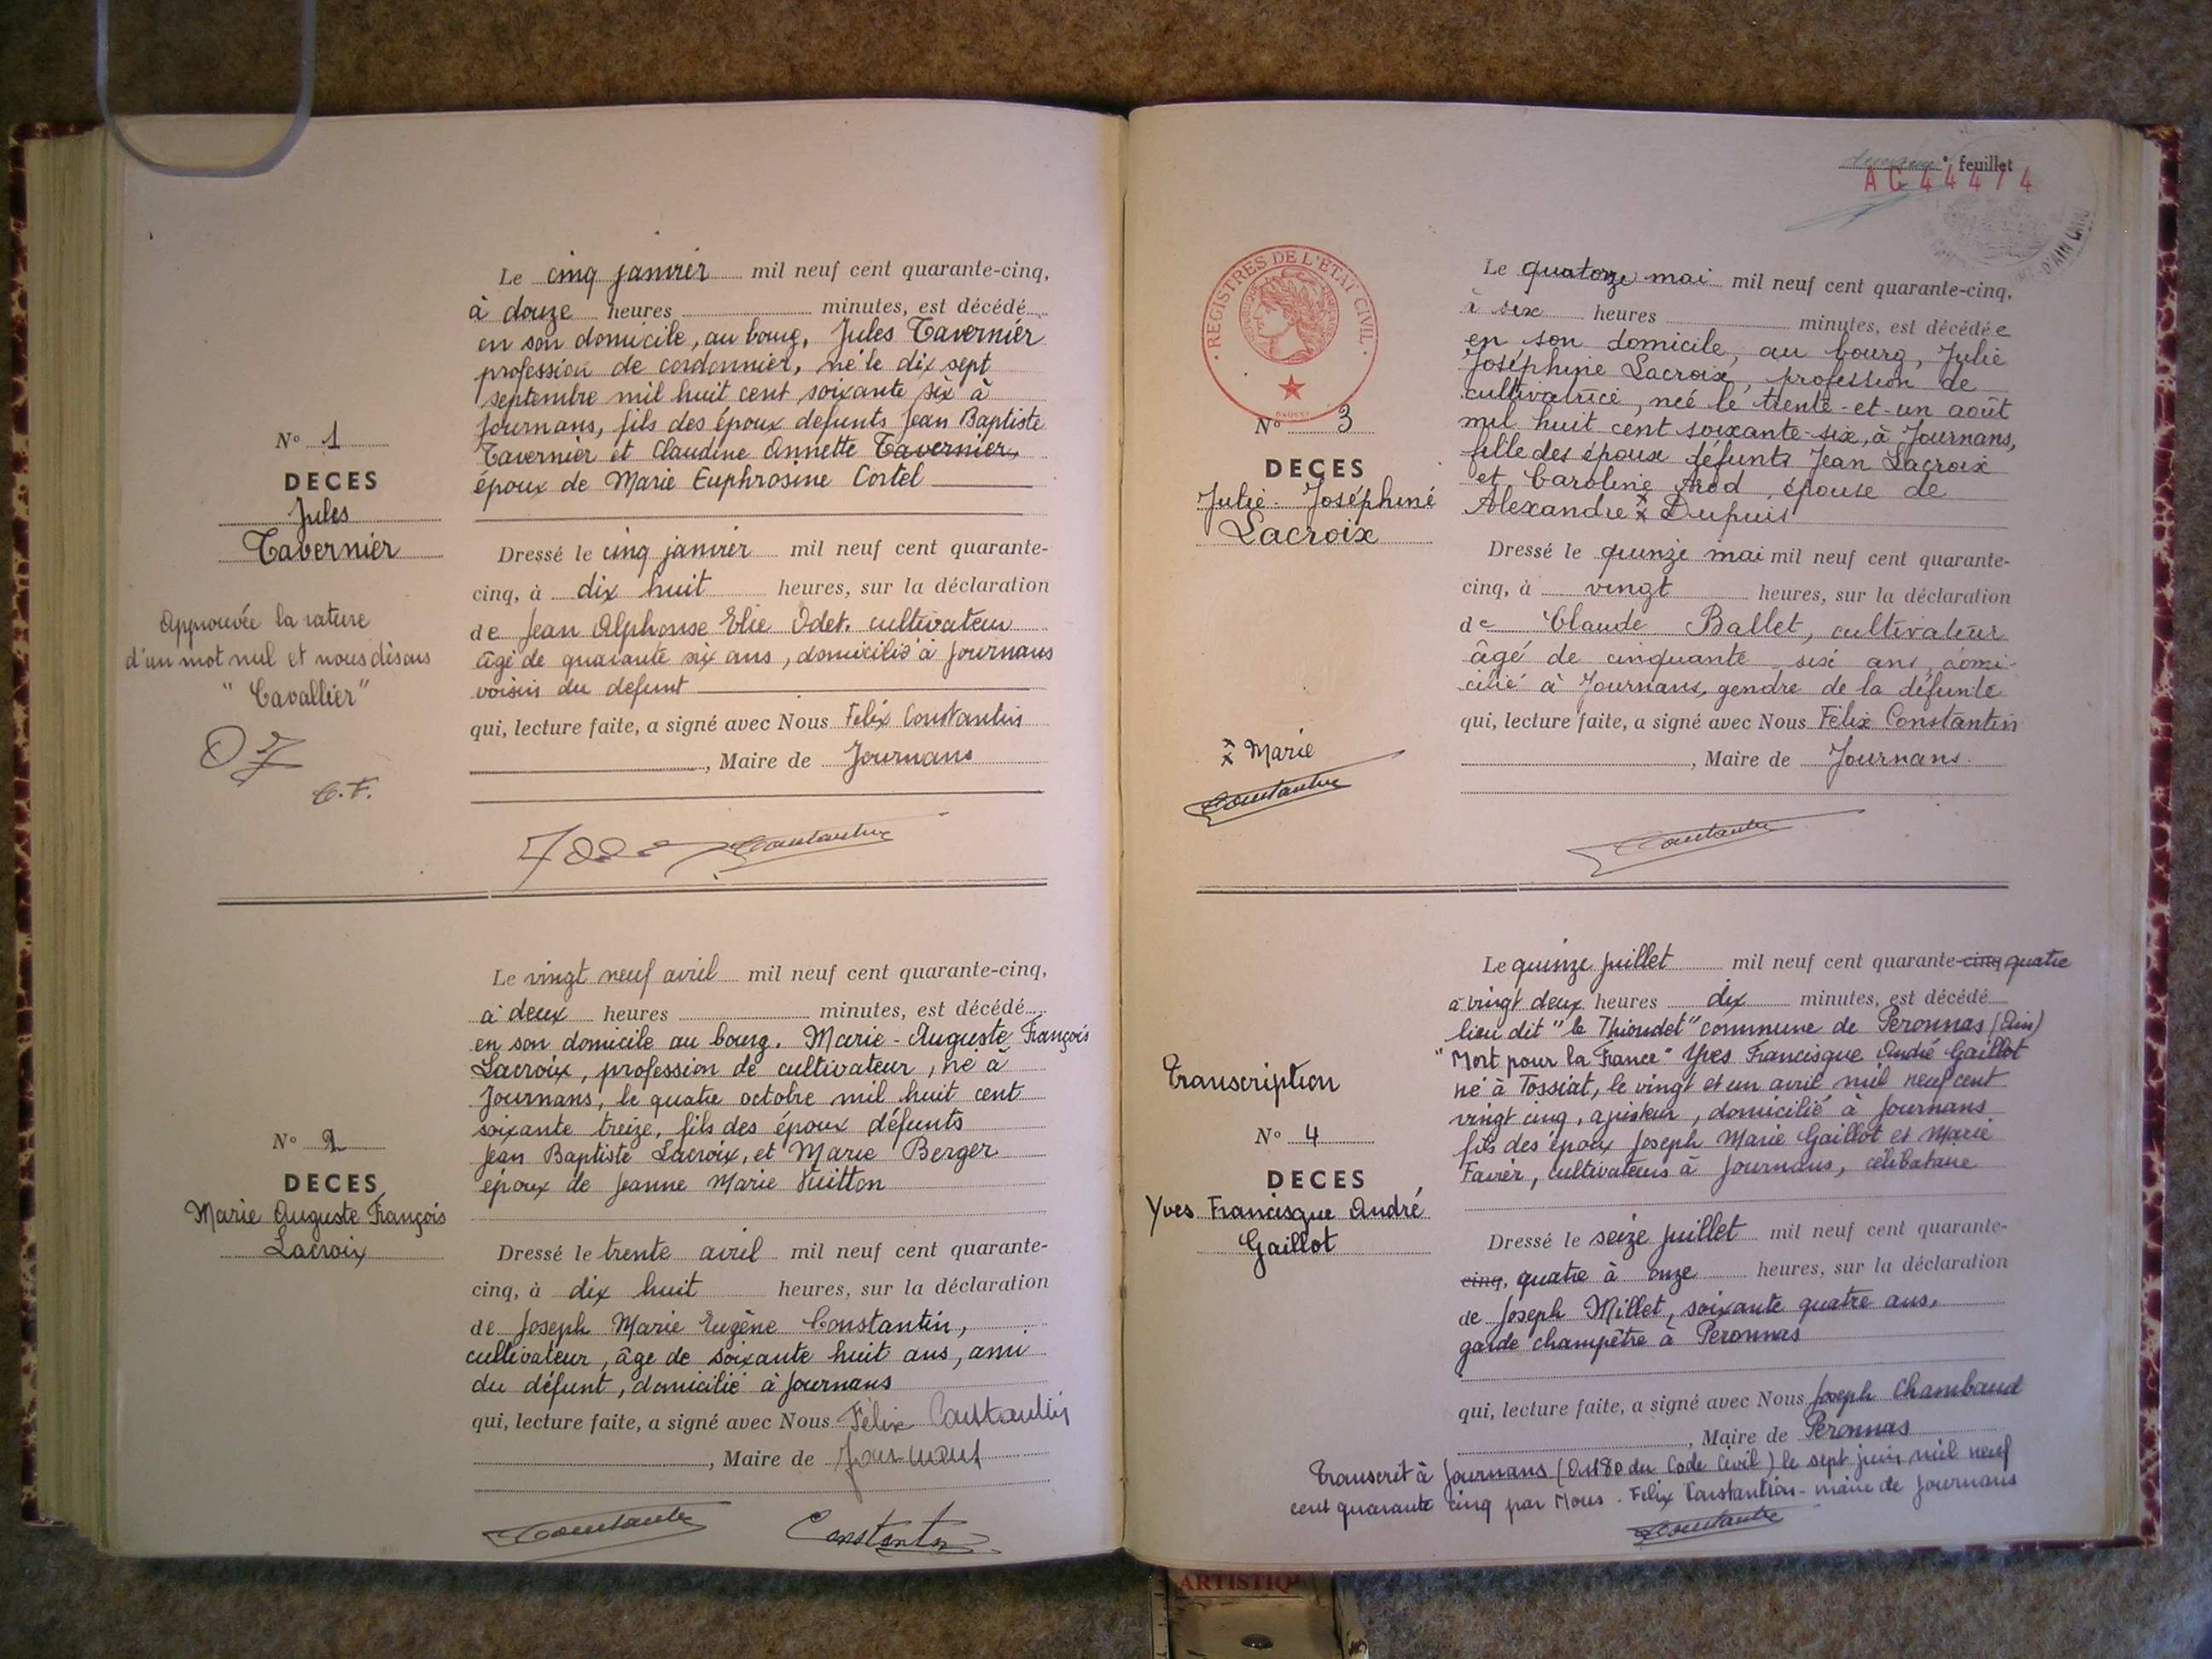 Le cinq janvier mil neuf cent quarante-cinq,
à douze heures minutes, est décédé
en son domicile, au bourg, Jules Tavernier
profession de cordonnier, né le dix sept
septembre mil huit cent soixante six à
Journans, fils des époux defunts Jean Baptiste
Tavernier et Claudine Annette Tavernier,
époux de Marie Euphrosine Cortel
N° 1
DECES
Jules
Tavernier
Approuvée la rature
d'un mot nul et nous disons
"Cavallier"
C.F.
Dressé le cinq janvier mil neuf cent quarante-
cinq, à dix huit heures, sur la déclaration
de Jean Alphonse Elie Odet. cultivateur
âgé de quarante six ans, domicilié à Journans
voisin du defunt
qui, lecture faite, a signé avec Nous Félix Constantin
, Maire de Journans
Constantin
Le vingt neuf avril mil neuf cent quarante-cinq,
à deux heures minutes, est décédé
en son domicile au bourg. Marie-Auguste François
Lacroix, profession de cultivateur, né à
Journans, le quatre octobre mil huit cent
soixante treize, fils des époux défunts
Jean Baptiste Lacroix, et Marie Berger
époux de Jeanne Marie Vuitton
N° 2
DECES
Marie Auguste François
Lacroix
Dressé le trente avril mil neuf cent quarante-
cinq, à dix huit heures, sur la déclaration
de Joseph Marie Eugène Constantin,
cultivateur, âge de soixante huit ans, ami
du défunt, domicilié à Journans
qui, lecture faite, a signé avec Nous Félix Constantin
, Maire de
Constantin Constantin
deuxième feuillet
AC 444/4
REGISTRES DE L'ETAT CIVIL
Le quatorze mai mil neuf cent quarante-cinq,
à six heures minutes, est décédée
en son domicile, au bourg, Julie
Joséphine Lacroix, profession de
cultivatrice, née le trente-et-un août
mil huit cent soixante-six, à Journans,
fille des époux défunts Jean Lacroix
et Caroline Arod, épouse de
Alexandre x Dupuis
N° 3
DECES
Julie-Joséphine
Lacroix
Dressé le quinze mai mil neuf cent quarante-
cinq, à vingt heures, sur la déclaration
de Claude Ballet, cultivateur
âgé de cinquante-six ans, domi-
cilié à Journans, gendre de la défunte
qui, lecture faite, a signé avec Nous Félix Constantin
, Maire de Journans.
x Marie
Constantin
Constantin
Le quinze juillet mil neuf cent quarante-cinq quatre
à vingt deux heures dix minutes, est décédé
lieu dit "le Thioudet" commune de Péronnas (Ain)
"Mort pour la France" Yves Francisque André Gaillot
né à Tossiat, le vingt et un avril mil neuf cent
vingt cinq, ajusteur, domicilié à Journans
fils des époux Joseph Marie Gaillot et Marie
Favier, cultivateurs à Journans, célibataire
Transcription
N° 4
DECES
Yves Francisque André
Gaillot
Dressé le seize juillet mil neuf cent quarante-
cinq, quatre à onze heures, sur la déclaration
de Joseph Millet, soixante quatre ans,
garde champêtre à Péronnas
qui, lecture faite, a signé avec Nous Joseph Chambaud
, Maire de Péronnas
Transcrit à Journans (Art 80 du Code Civil) le sept juin mil neuf
cent quarante cinq par Nous. Félix Constantin-maire de Journans
Constantin
ARTISTIQ